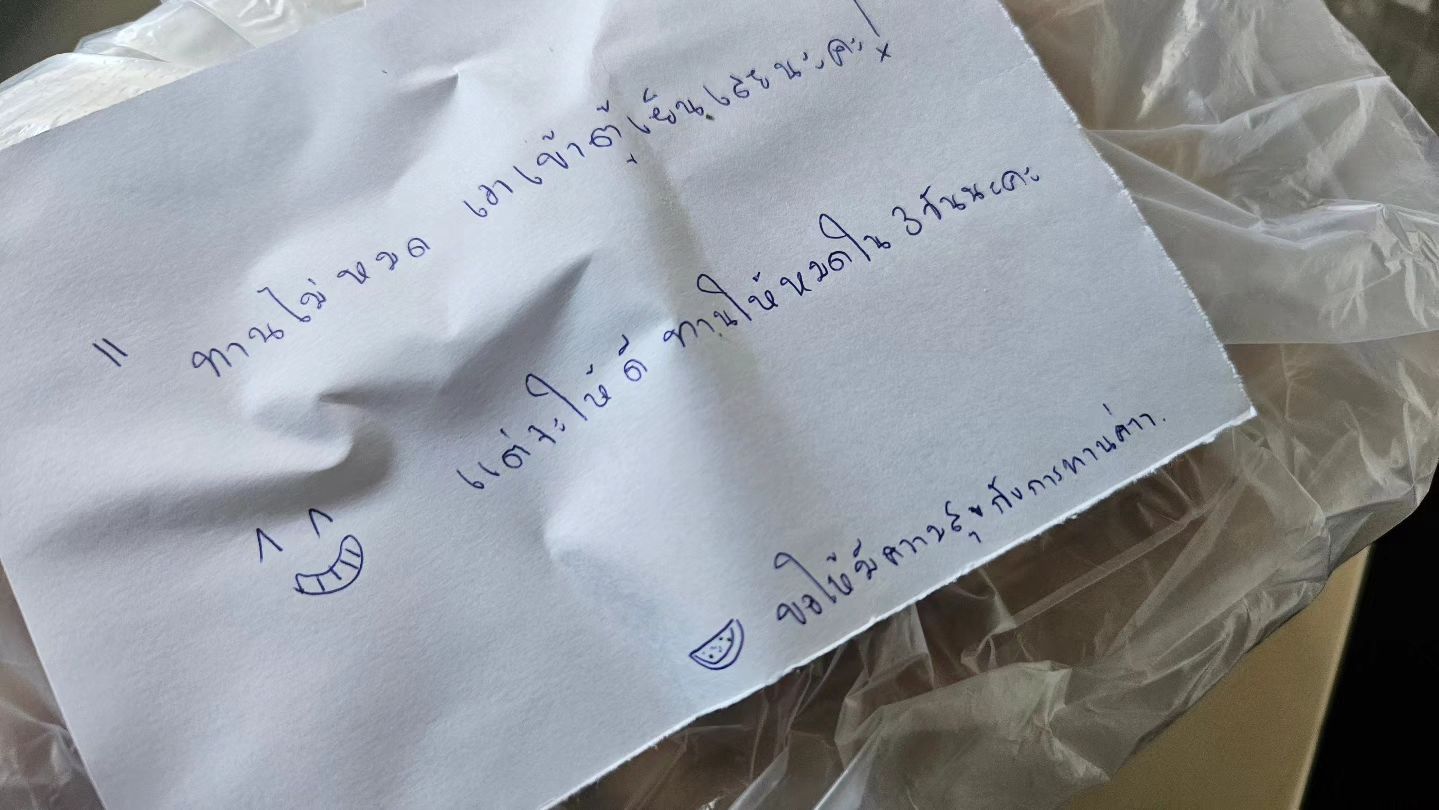 " ทานไม่หมด เอาเข้าตู้เย็นเลยนะคะ!
แต่จะให้ดี ทานให้หมดใน 3 วันนะคะ
ขอให้มีความสุขกับการทานค่าา.